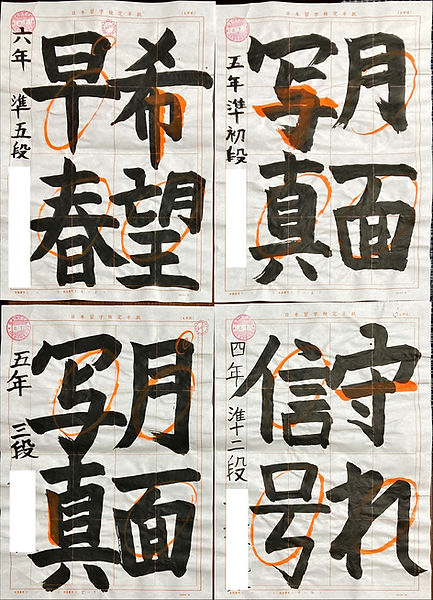 日本習字検定半紙
希望
早春
六年 準五段
日本習字検定半紙
月面
写真
五年 準初段
日本習字検定半紙
月面
写真
五年 三段
日本習字検定半紙
守れ
信号
四年 準十二段